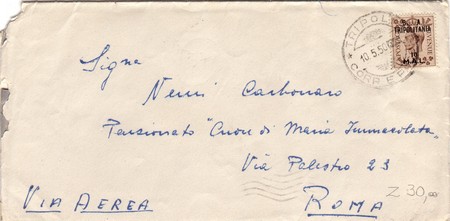 TRIPOLI
10.5.50
CORR. E PA
B. A.
TRIPOLITANIA
M.A.L.
Sig.na
Nenni Carbonaro
Pensionato "Cuor di Maria Immacolata"
Via Palestro 23
VIA AEREA
ROMA
Z 30,00